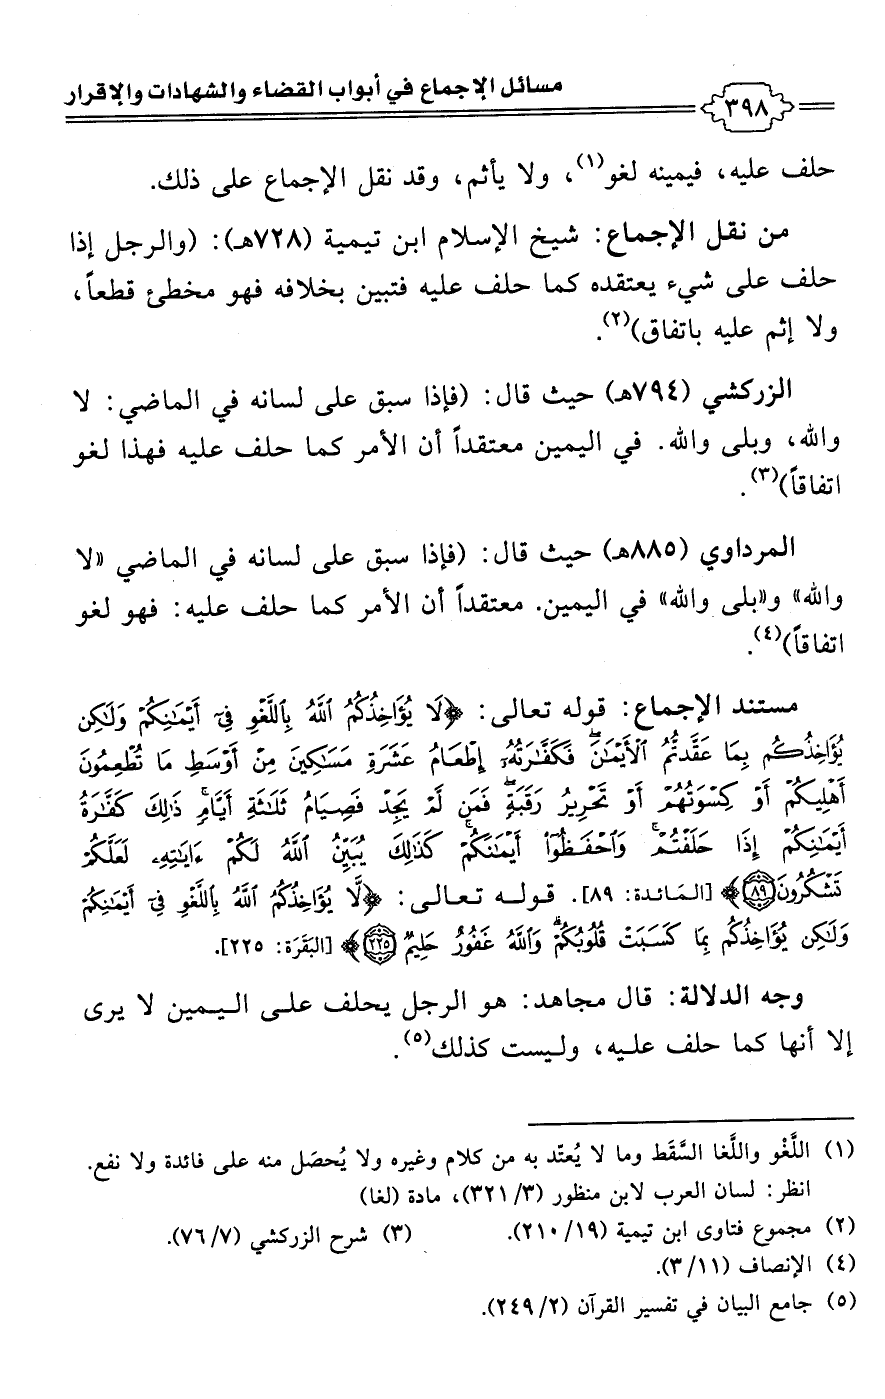 ٣٩٨
مسائل الإجماع في أبواب القضاء والشهادات والإقرار
حلف عليه، فيمينه لغو(١)، ولا يأثم، وقد نقل الإجماع على ذلك.
من نقل الإجماع: شيخ الإسلام ابن تيمية (٧٢٨هـ): (والرجل إذا
حلف على شيء يعتقده كما حلف عليه فتبين بخلافه فهو مخطئ قطعاً،
ولا إثم عليه باتفاق)(٢).
الزركشي (٧٩٤هـ) حيث قال: (فإذا سبق على لسانه في الماضي: لا
والله، وبلى والله. في اليمين معتقداً أن الأمر كما حلف عليه فهذا لغو
اتفاقاً)(٣).
المرداوي (٨٨٥هـ) حيث قال: (فإذا سبق على لسانه في الماضي «لا
والله» و«بلى والله» في اليمين. معتقداً أن الأمر كما حلف عليه: فهو لغو
اتفاقاً)(٤).
مستند الإجماع: قوله تعالى: ﴿لَا يُؤَاخِذُكُمُ ٱللَّهُ بِٱللَّغْوِ فِىٓ أَيْمَٰنِكُمْ وَلَٰكِن
يُؤَاخِذُكُم بِمَا عَقَّدتُّمُ ٱلْأَيْمَٰنَ ۖ فَكَفَّٰرَتُهُۥٓ إِطْعَامُ عَشَرَةِ مَسَٰكِينَ مِنْ أَوْسَطِ مَا تُطْعِمُونَ
أَهْلِيكُمْ أَوْ كِسْوَتُهُمْ أَوْ تَحْرِيرُ رَقَبَةٍ ۖ فَمَن لَّمْ يَجِدْ فَصِيَامُ ثَلَٰثَةِ أَيَّامٍ ۚ ذَٰلِكَ كَفَّٰرَةُ
أَيْمَٰنِكُمْ إِذَا حَلَفْتُمْ ۚ وَٱحْفَظُوٓا۟ أَيْمَٰنَكُمْ ۚ كَذَٰلِكَ يُبَيِّنُ ٱللَّهُ لَكُمْ ءَايَٰتِهِۦ لَعَلَّكُمْ
تَشْكُرُونَ ٨٩﴾ [المَائدة: ٨٩]. قوله تعالى: ﴿لَّا يُؤَاخِذُكُمُ ٱللَّهُ بِٱللَّغْوِ فِىٓ أَيْمَٰنِكُمْ
وَلَٰكِن يُؤَاخِذُكُم بِمَا كَسَبَتْ قُلُوبُكُمْ ۗ وَٱللَّهُ غَفُورٌ حَلِيمٌ ٢٢٥﴾ [البَقَرَة: ٢٢٥].
وجه الدلالة: قال مجاهد: هو الرجل يحلف على اليمين لا يرى
إلا أنها كما حلف عليه، وليست كذلك(٥).
(١) اللَّغْو واللَّغا السَّقَط وما لا يُعتّد به من كلام وغيره ولا يُحصَل منه على فائدة ولا نفع.
انظر: لسان العرب لابن منظور (٣/ ٣٢١)، مادة (لغا)
(٢) مجموع فتاوى ابن تيمية (١٩/ ٢١٠). (٣) شرح الزركشي (٧/ ٧٦).
(٤) الإنصاف (١١/ ٣).
(٥) جامع البيان في تفسير القرآن (٢/ ٢٤٩).